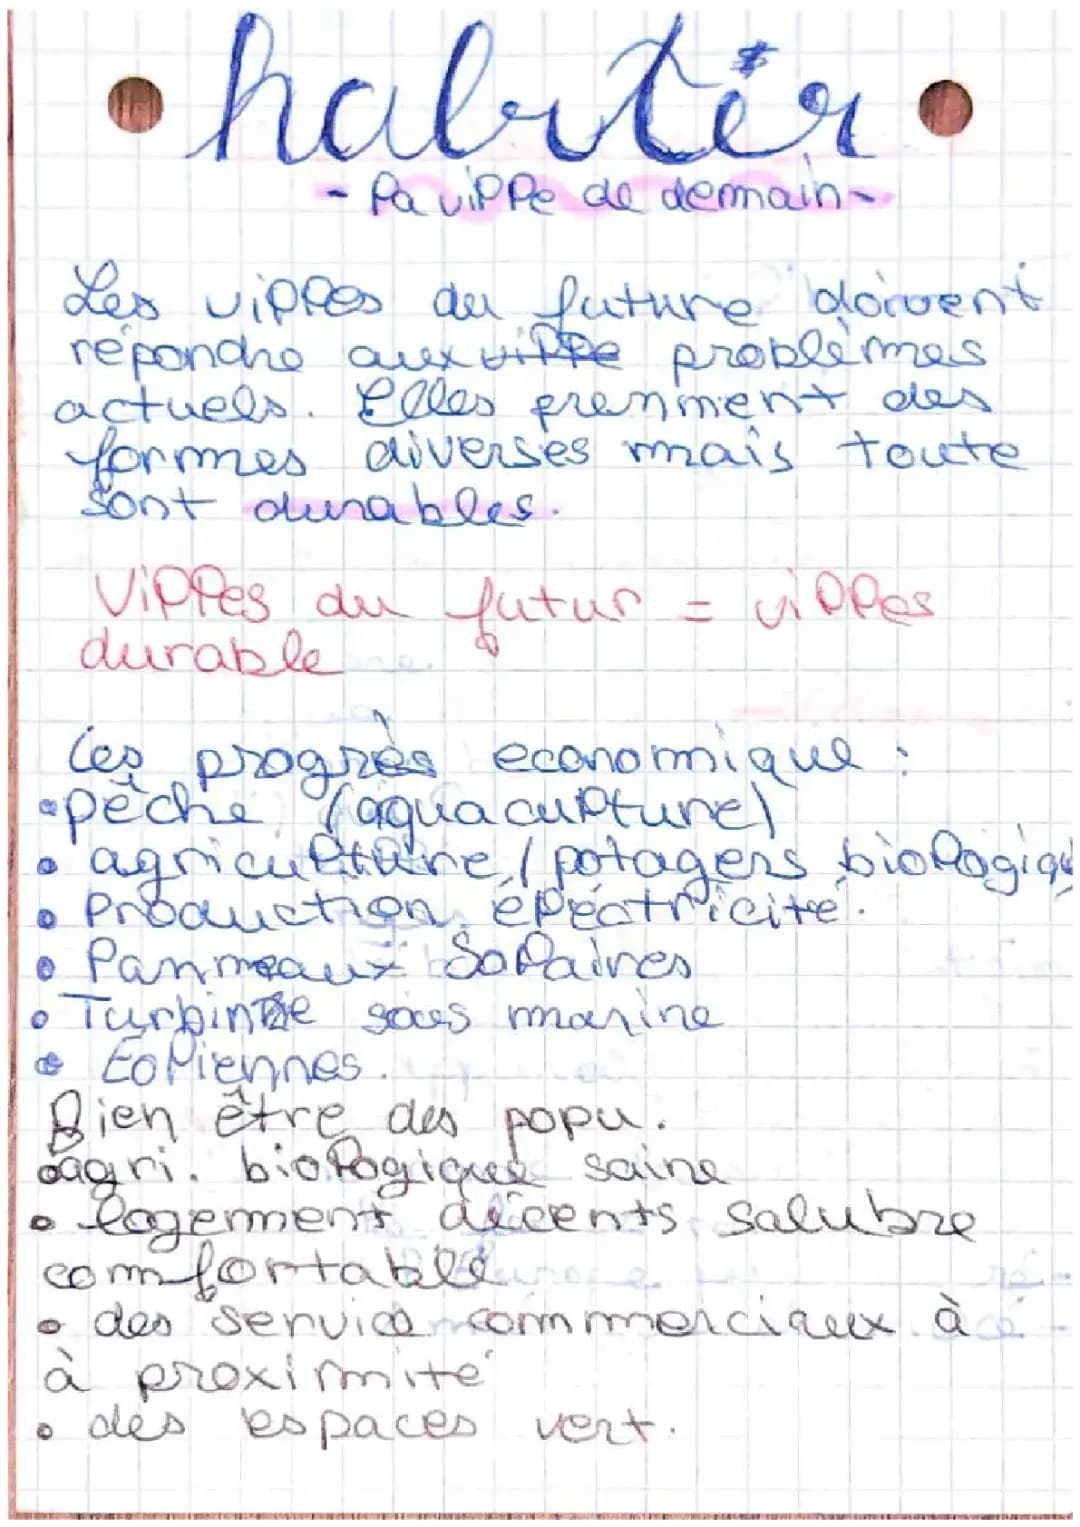 • habiter •
- la ville de demain -
Les villes du future doivent
répondre aux ville problèmes
actuels. Elles prennment des
formes diverses mais toute
sont durables.
Villes du futur = villes
durable
les progrès economique :
• pêche (aquaculture)
• agriculture / potagers biologiqu
• Production électricité.
• Panneaux Solaires
• Turbine sous marine
• Eoliennes.
Bien être des popu.
• agri. biologique saine
• logement décents salubre
comfortable
• des service commerciaux à
à proximité
• des espaces vert.